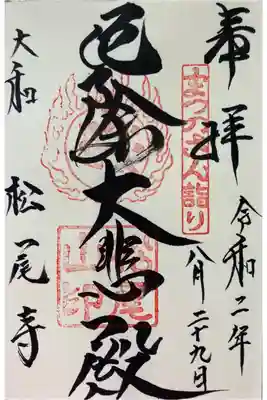 奉拝
まつのおさん詣り
令和二年
八月二十九日
厄除
大悲殿
大和
松尾寺